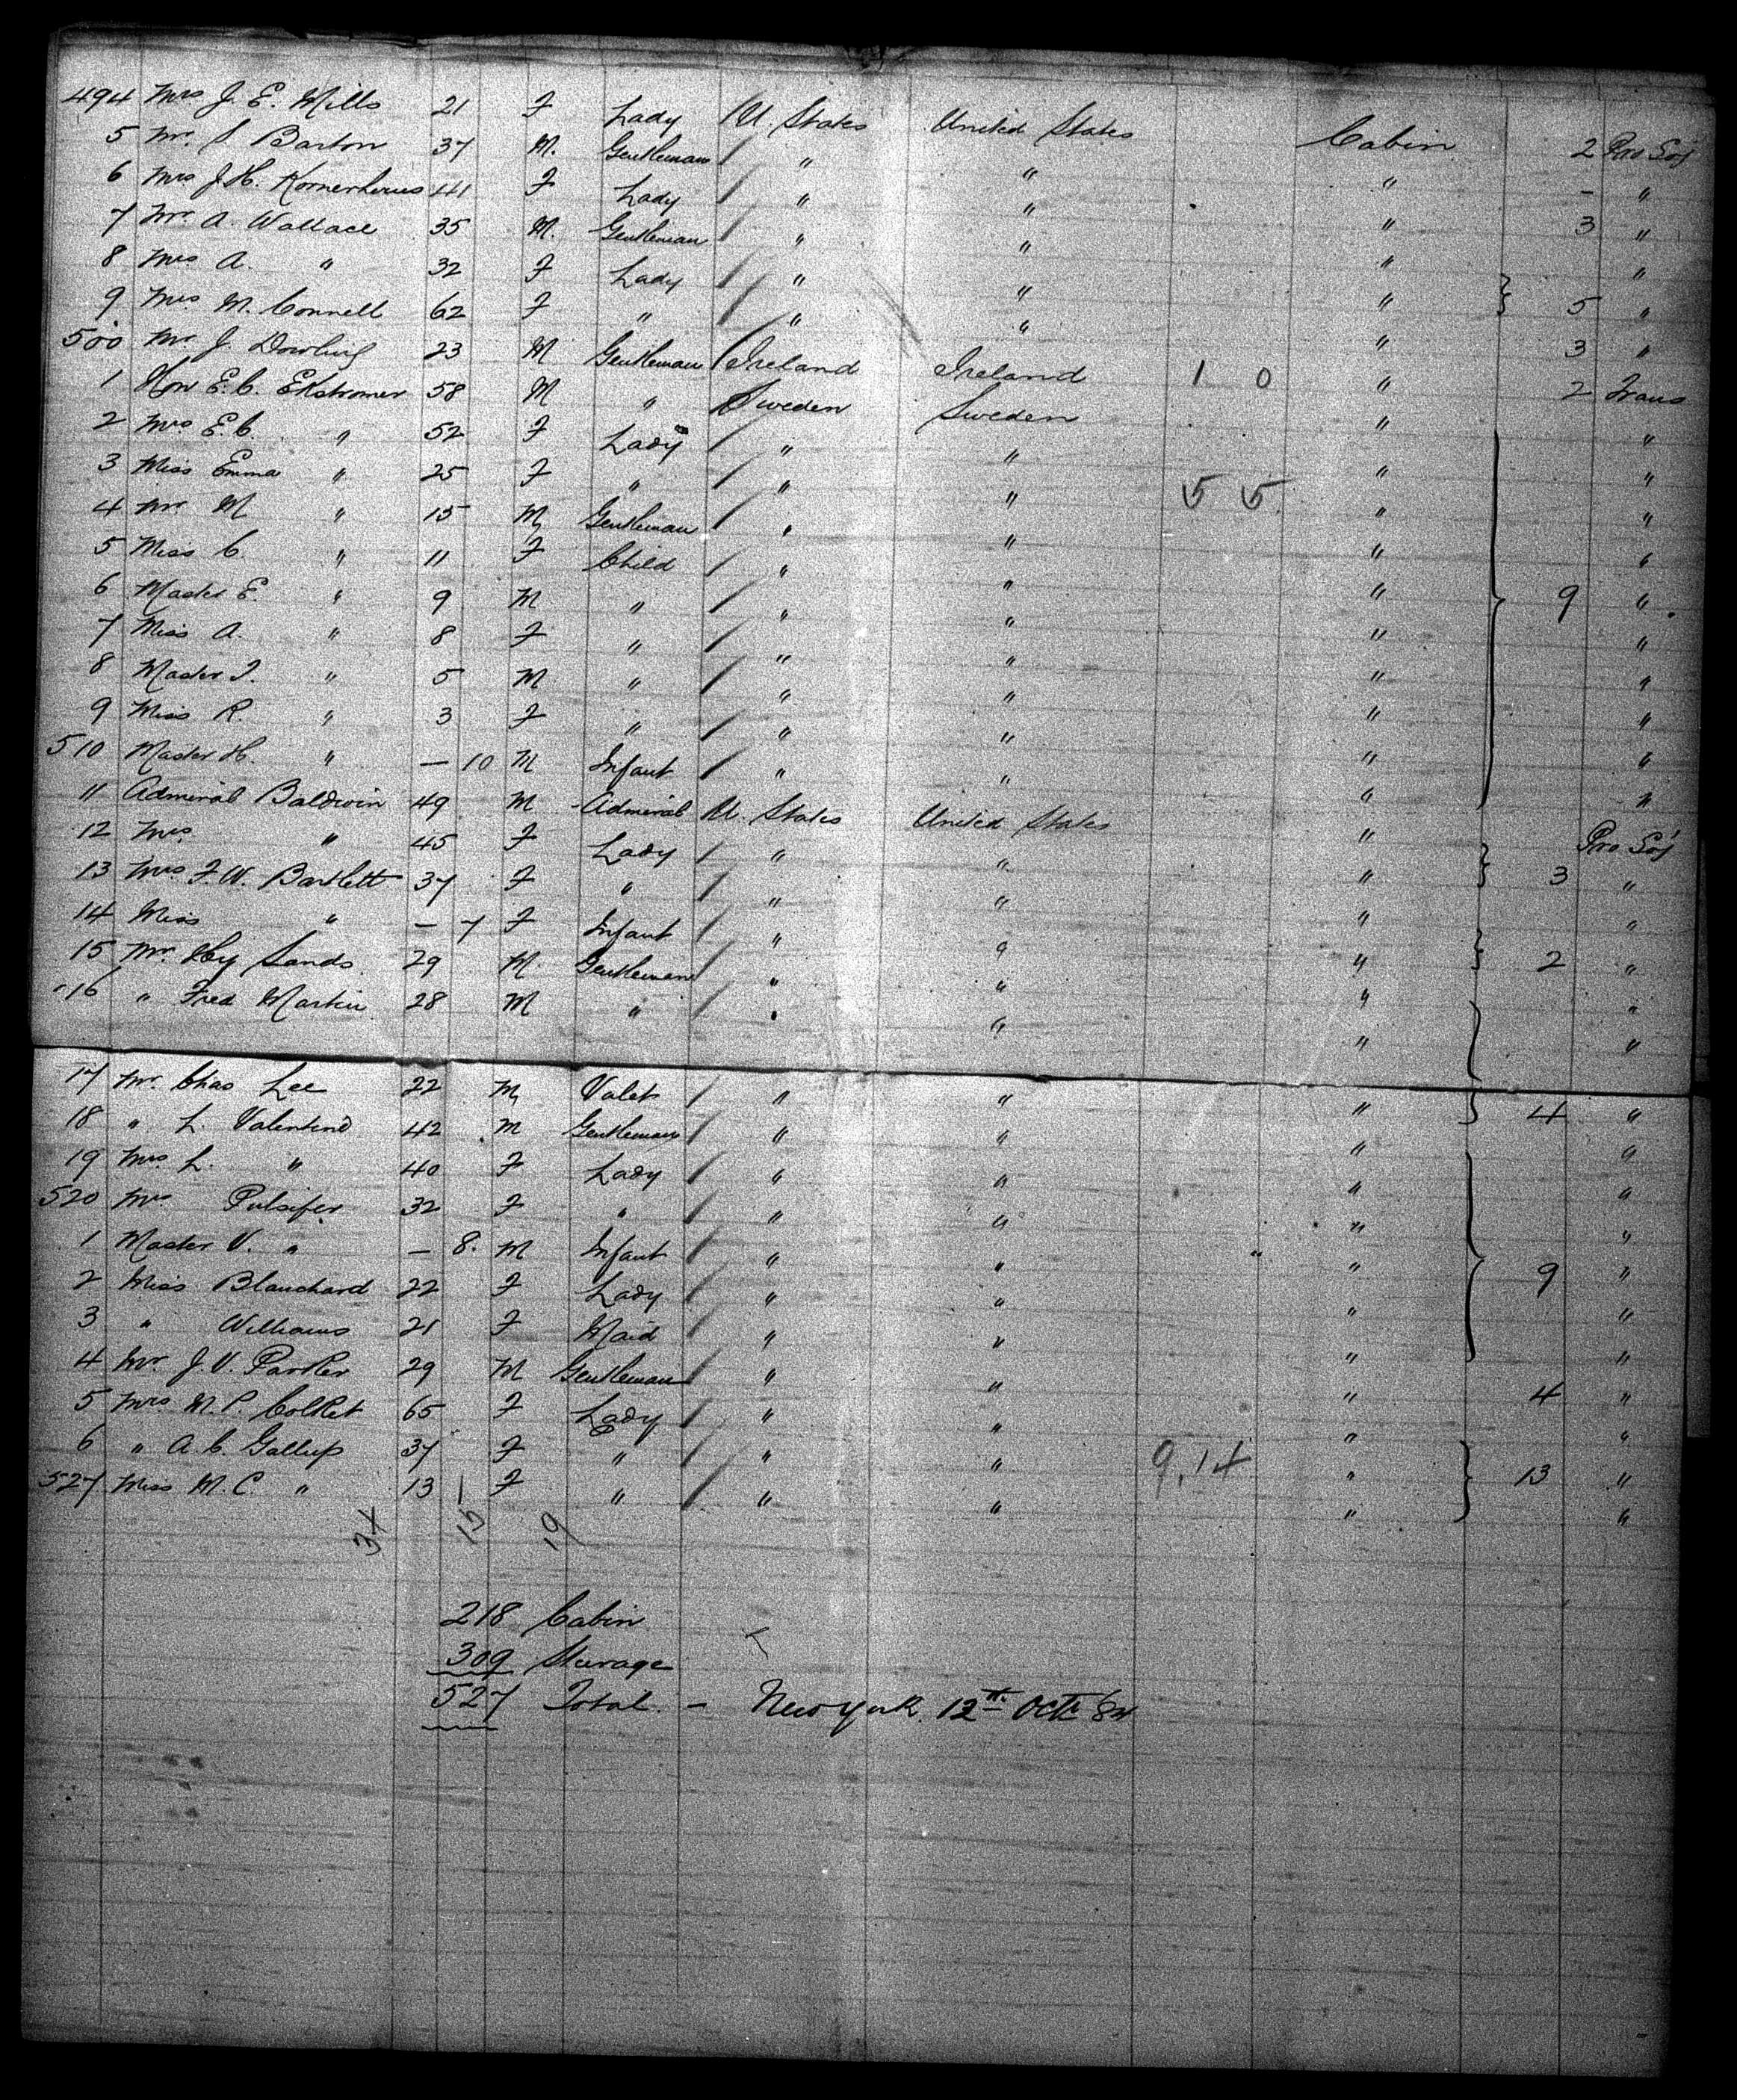 494 Mrs J. E. Mills 21 F Lady U. States United States Cabin 2 Pro Soj
5 Mr. S Barton 37 M. Gentleman " " " - "
6 Mrs J. H. 41 F Lady " " " 3 "
7 Mr. A. Wallace 35 M. Gentleman " " " "
8 Mrs A. " 32 F Lady " " " 5 "
9 Mrs. M. Connell 62 F " " " " 3 "
500 Mr J. Dowling 23 M Gentleman Ireland Ireland 1 0 " 2 Trans
1 Hon E. C. Ekstromer 58 M " Sweden Sweden " "
2 Mrs E. C. " 52 F Lady " " " "
3 Miss Emma " 25 F " " " 5 5 " "
4 Mr M " 15 M Gentleman " " " "
5 Miss C. " 11 F Child " " " "
6 Master E. " 9 M " " " " 9 "
7 Miss A. " 8 F " " " " "
8 Master I. " 5 M " " " " "
9 Miss R. " 3 F " " " " "
510 Master H. " — 10 M Infant " " " "
11 Admiral Baldwin 49 M Admiral U. States United States " Pro Soj
12 Mrs. " 45 F Lady " " " 3 "
13 Mrs F. W. Bartlett 37 F " " " " "
14 Miss " — 7 F Infant " " " 2 "
15 Mr. Hy Sands 29 M. Gentleman " " " "
16 " Fred Martin 28 M " " " " "
17 Mr. Chas Lee 22 M Valet " " " 4 "
18 " L. Valentine 42 M Gentleman " " " "
19 Mrs. L. " 40 F Lady " " " "
520 Mrs. Pulsifer 32 F " " " " "
1 Master V. " — 8. M Infant " " " 9 "
2 Miss Blanchard 22 F Lady " " " "
3 " Williams 21 F Maid " " " "
4 Mr J. V. Parker 29 M Gentleman " " " 4 "
5 Mrs M. P. Colket 65 F Lady " " " "
6 " A. C. Gallup 37 F " " " 9.14 " 13 "
527 Miss M. C " 13 F " " " " "
34 15 19
218 Cabin
309 Steerage
527 Total. - New York. 12th Oct 84